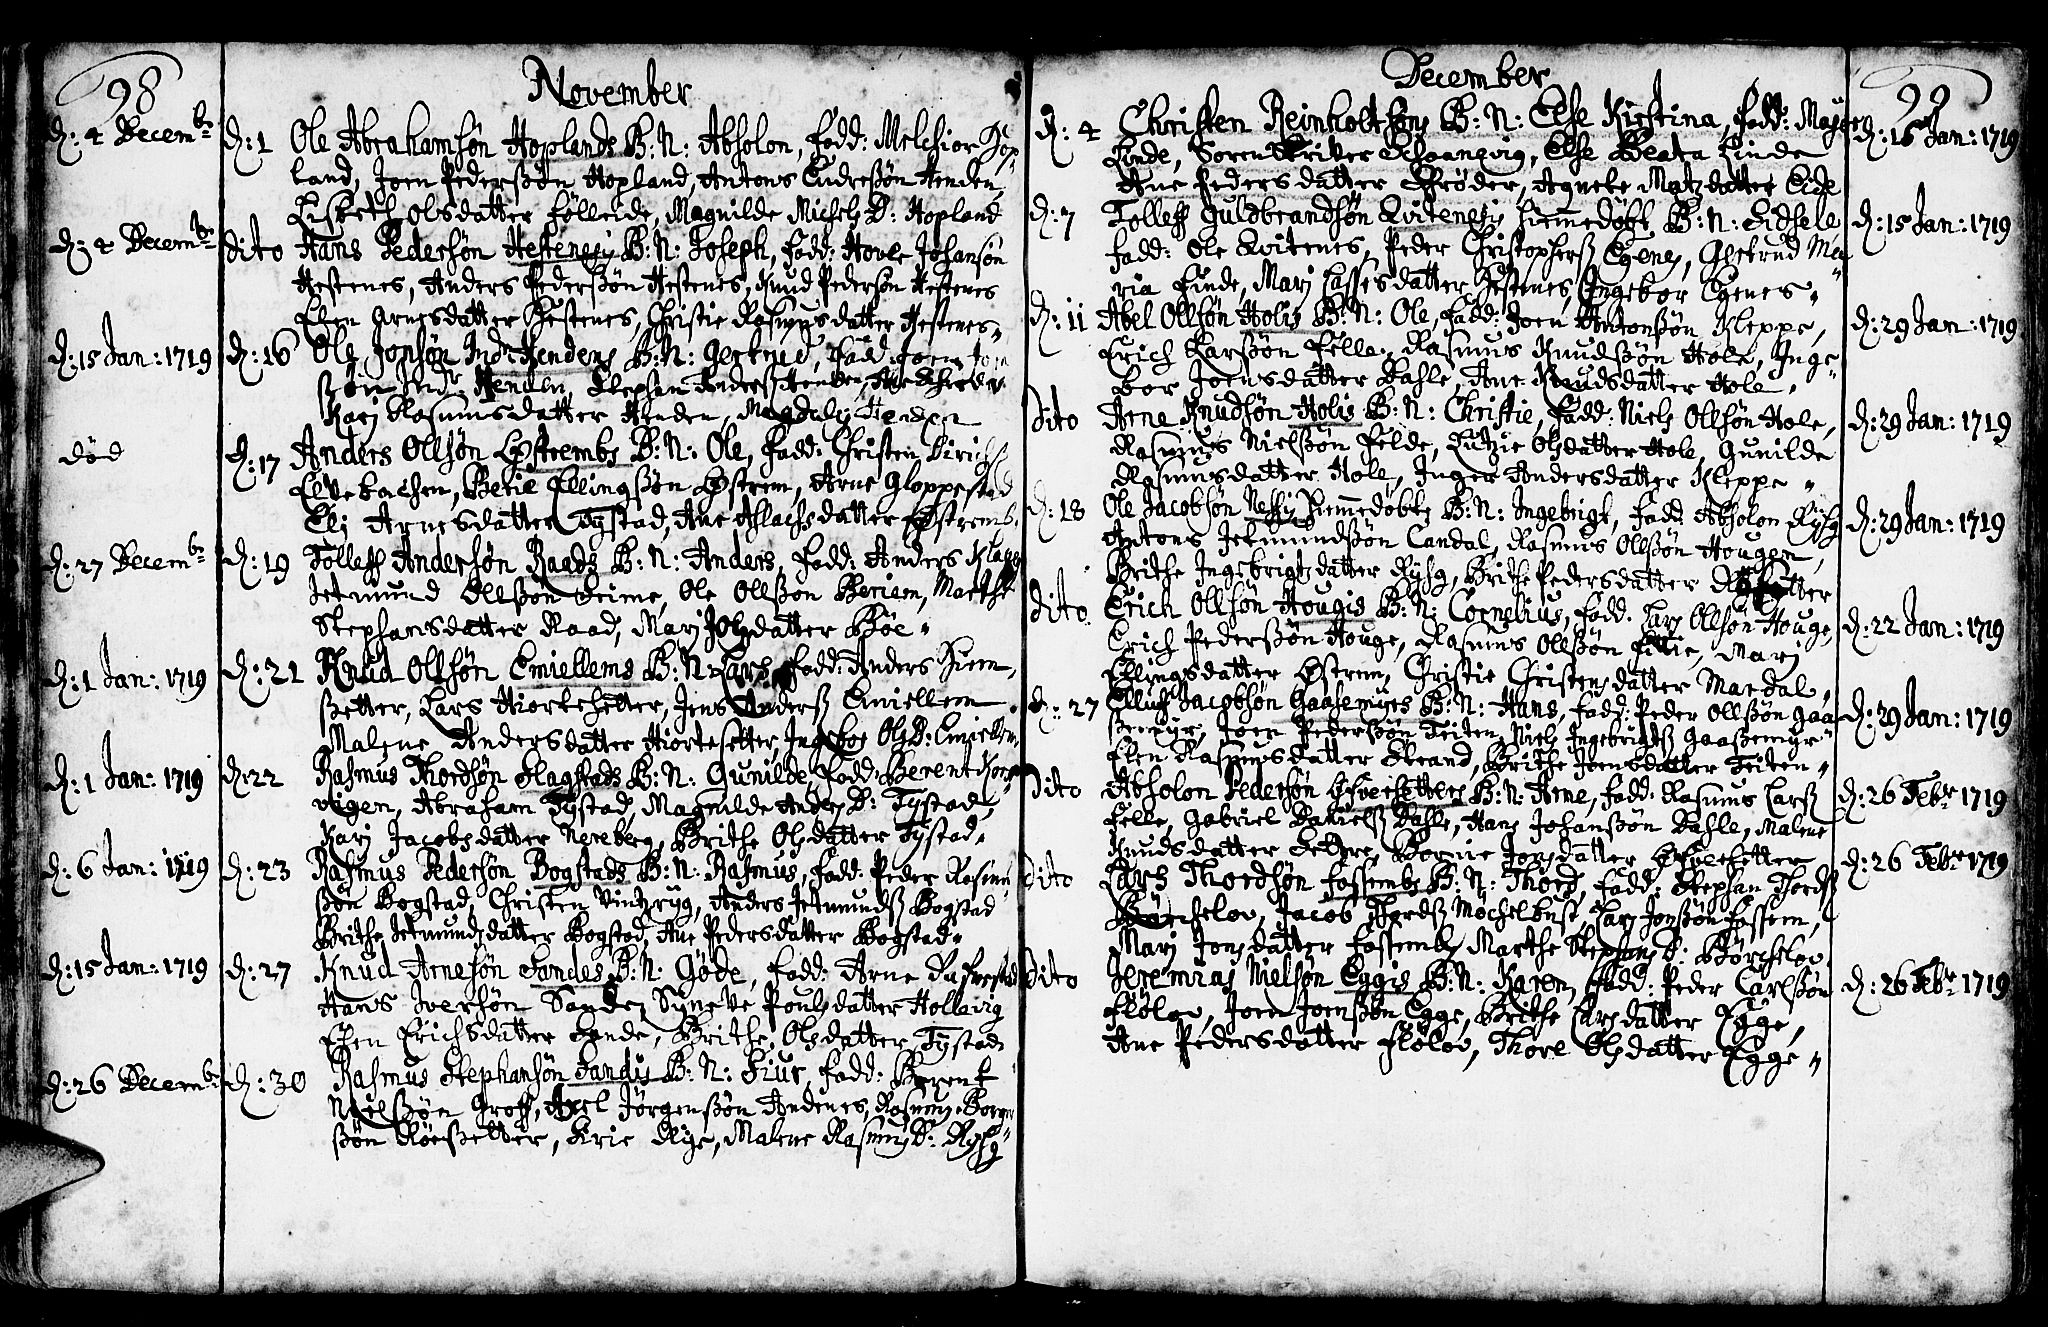 98
November
d: 4 Decemb:
d: 1 Ole Abrahamsøn Hoplands B: N: Absolon, fadd: Melchior Hop-
land, Joen Pedersøn Hopland, Antons Endresøn Henden,
Lisbeth Olsdatter Følleide, Magnilde Michels D: Hopland
d: 4 Decemb:
Dito Hans Pedersøn Hestenesis B: N: Joseph, fadd: Hove Johansøn
Hestenes, Anders Pedersøn Hestenes, Knud Pedersøn Hestenes
Elen Arnesdatter Hestenes, Christie Rasmusdatter Hestenes
d: 15 Jan: 1719
d: 16 Ole Jonsøn Indr Hendens B: N: Gertrud, fadd: Joen Jon
søn Indr Henden, Stephan Anderss Henden,
Kari Rasmusdatter Henden, Magdali Henden
død
d: 17 Anders Ollsøn Østrembs B: N: Ole, fadd: Christen
Elvebachen, Berie Ellingsøn Østrem, Arne Gloppestad
Eli Arnesdatter Tystad, Ane Aslachsdatter Østrembs
d: 27 Decemb:
d: 19 Tolleff Andersøn Raads B: N: Anders, fadd: Anders
Jetmund Ollsøn Reime, Ole Ollsøn Beriem, Marthe
Stephansdatter Raad, Mari Jolsdatter Bøe
d: 1 Jan: 1719
d: 21 Knud Ollsøn Emiellems B: N: Lars, fadd: Anders Hiem
setter, Lars Hiortesetter, Jens Anderss Emiellem
Malene Andersdatter Hiortesetter, Ingebor Ols D: Emiellem
d: 1 Jan: 1719
d: 22 Rasmus Thordsøn Flagstads B: N: Gunilde, fadd: Berent
vogen, Abraham Tystad, Magnilde Anders D: Tystad,
Kari Jacobsdatter Nereberg, Brithe Olsdatter Tystad
d: 6 Jan: 1719
d: 23 Rasmus Pedersøn Bogstads B: N: Rasmus, fadd: Peder Rasmu
søn Bogstad, Christen Vintzryg, Anders Jetmundss Bogstad
Brithe Jetmundsdatter Bogstad, Ane Pedersdatter Bogstad
d: 15 Jan: 1719
d: 27 Knud Arnesøn Sandes B: N: Gøde, fadd: Arne
Hans Iversøn Sande, Synneve Poulsdatter Hollevig
Elen Erichsdatter Sande, Brithe Olsdatter Tystad
d: 26 Decemb:
d: 30 Rasmus Stephansøn Sandis B: N: Siur, fadd: Berent
Nielsøn Groff, Axel Jørgensøn Andenes, Rasmus
søn Røesetter, Kirie Rye, Malene Rasmus D: Rysg
December
99
d: 4 Christen Reinholtsøns B: N: Else Kirstina, fadd:
Linde, Soren Schaanevig, Else Beata Linde
Ane Pedersdatter Schrøder, Agnete Matzdatter Eide
d: 15 Jan: 1719
d: 7 Tolleff Guldbrandsøn Qvitenesis hiemmedøbt B: N: Eidsele
fadd: Ole Qvitenes, Peder Christophers Egenes, Gertrud Ma
ria Linde, Mari Lassesdatter Hestenes, Ingebor Egenes
d: 15 Jan: 1719
d: 11 Abel Ollsøn Holis B: N: Ole, fadd: Joen Antonsøn Kleppe,
Erich Larsøn Felle, Rasmus Knudsøn Hole, Inge-
bor Joensdatter Dahle, Ane Knudsdatter Hole
d: 29 Jan: 1719
Dito Arne Knudsøn Holis B: N: Christie, fadd: Niels Ollsøn Hole,
Rasmus Nielsøn Felde, Lutzie Olsdatter Hole, Gunilde
Rasmusdatter Hole, Inger Andersdatter Kleppe
d: 29 Jan: 1719
d: 18 Ole Jacobsøn Nessis hiemmedøbte B: N: Ingebrigt, fadd: Absolon Rysg
Antons Jetmundsøn Landal, Rasmus Ollsøn Hougen,
Brithe Ingebrigtsdatter Rysg, Brithe Pedersdatter
d: 29 Jan: 1719
Dito Erich Ollsøn Hougis B: N: Cornelius, fadd: Lars Ollsøn Houge,
Erich Pedersøn Houge, Rasmus Ollsøn, Mari
Ellingsdatter Østrem, Christie Christensdatter Mardal
d: 22 Jan: 1719
d: 27 Elluff Jacobsøn Gaasemyrs B: N: Hans, fadd: Peder Ollsøn Gaa
semyr, Joen Pedersøn Teiten, Niels Ingebrigts Gaasemyr
Elen Rasmusdatter Strand, Brithe Joensdatter Teiten
d: 29 Jan: 1719
Dito Absolon Pedersøn Øfversetters B: N: Arne, fadd: Rasmus Larss
Felle, Gabriel Danielss Dahle, Hans Johansøn Dahle, Malene
Knudsdatter, Bornie Jonsdatter Øfversetter
d: 26 Febr 1719
Dito Lars Thordsøn Fossembs B: N: Thord, fadd: Stephan Thordss
Børcheløv, Jacob Thordss Møchelbust, Lars Jonsøn Fossem,
Mari Jonsdatter Fossembs, Marthe Stephans D: Børcheløv
d: 26 Febr 1719
Dito Jeremias Nielsøn Eggis B: N: Karen, fadd: Peder Carlsøn
Fløløv, Joen Joensøn Egge, Brithe Larsdatter Egge,
Ane Pedersdatter Fløløv, Thore Olsdatter Egge
d: 26 Febr 1719